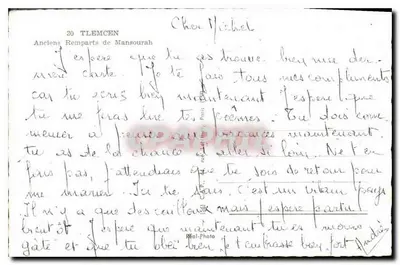 Cher Michel
20 TLEMCEN
Anciens Remparts de Mansourah
J'espère que tu as trouvé bien ma der
nière carte. Je te fais tous mes compliments
car tu écris bien maintenant. J'espère que
tu me feras lire tes poèmes. Tu dois com
mencer à penser aux vacances maintenant.
tu as de la chance d'aller si loin. Ne t'en
fais pas, j'attendrai que tu sois de retour pour
me marier. Ici tu sais, c'est un vilain pays
Il n'y a que des cailloux mais j'espère partir
bientôt. J'espère que maintenant tu es moins
gâté et que tu obéis bien. Je t'embrasse bien fort
Real-Photo